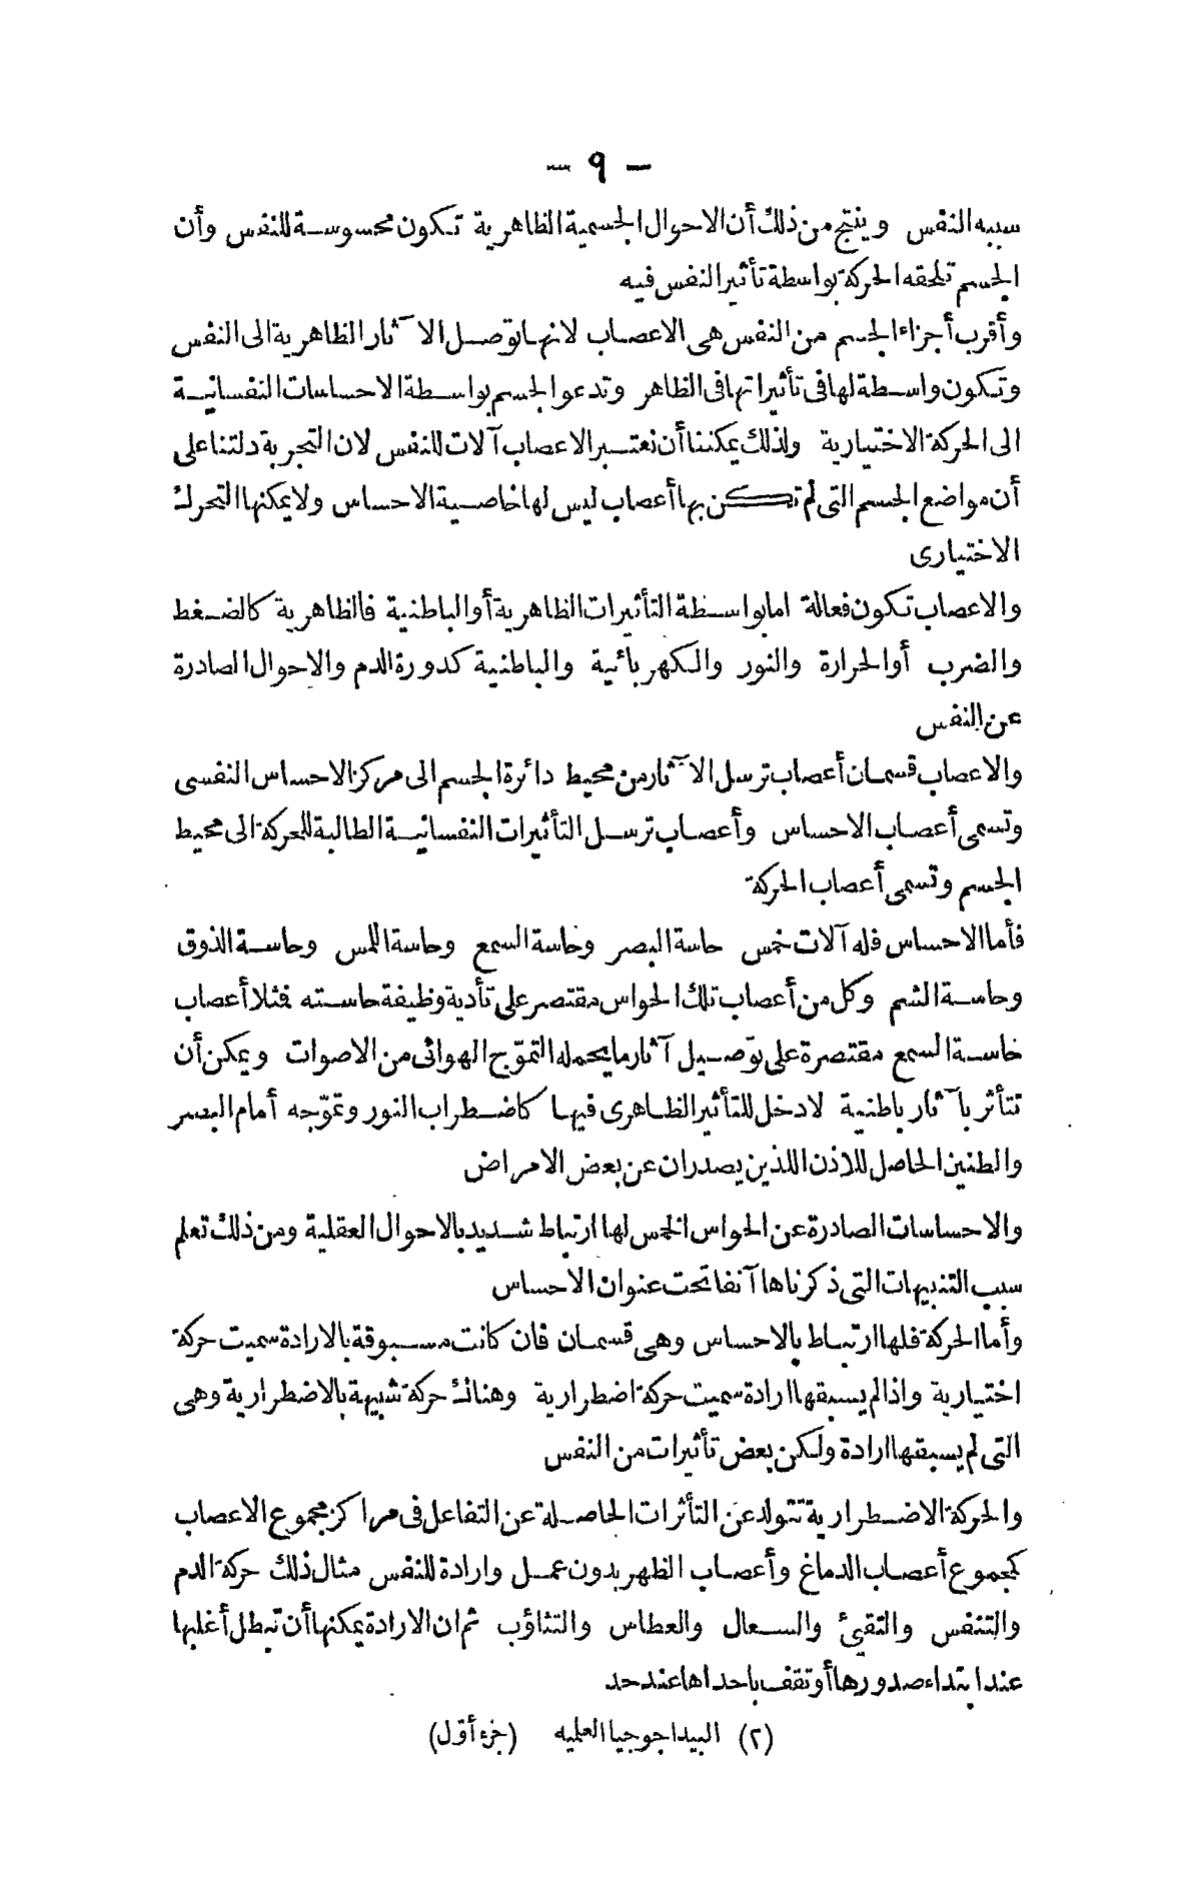 — ٩ —
سببه النفس وينتج من ذلك أن الاحوال الجسمية الظاهرية تكون محسوسة للنفس وأن
الجسم تلحقه الحركة بواسطة تأثير النفس فيه
وأقرب أجزاء الجسم من النفس هى الاعصاب لانها توصل الآثار الظاهرية الى النفس
وتكون واسطة لها فى تأثيراتها فى الظاهر وتدعو الجسم بواسطة الاحساسات النفسانية
الى الحركة الاختيارية ولذلك يمكننا أن نعتبر الاعصاب آلات للنفس لان التجربة دلتنا على
أن مواضع الجسم التى لم تكن بها أعصاب ليس لها خاصية الاحساس ولا يمكنها التحرك
الاختيارى
والاعصاب تكون فعالة اما بواسطة التأثيرات الظاهرية أو الباطنية فالظاهرية كالضغط
والضرب أو الحرارة والنور والكهربائية والباطنية كدورة الدم والاحوال الصادرة
عن النفس
والاعصاب قسمان أعصاب ترسل الآثار من محيط دائرة الجسم الى مركز الاحساس النفسى
وتسمى أعصاب الاحساس وأعصاب ترسل التأثيرات النفسانية الطالبة للحركة الى محيط
الجسم وتسمى أعصاب الحركة
فأما الاحساس فله آلات خمس حاسة البصر وحاسة السمع وحاسة اللمس وحاسة الذوق
وحاسة الشم وكل من أعصاب تلك الحواس مقتصر على تأدية وظيفة حاسته فمثلا أعصاب
حاسة السمع مقتصرة على توصيل آثار ما يحمله التموّج الهوائى من الاصوات ويمكن أن
تتأثر بآثار باطنية لا دخل للتأثير الظاهرى فيها كاضطراب النور وتموّجه أمام البصر
والطنين الحاصل للاذن اللذين يصدران عن بعض الامراض
والاحساسات الصادرة عن الحواس الخمس لها ارتباط شديد بالاحوال العقلية ومن ذلك تعلم
سبب التنبيهات التى ذكرناها آنفا تحت عنوان الاحساس
وأما الحركة فلها ارتباط بالاحساس وهى قسمان فان كانت مسبوقة بالارادة سميت حركة
اختيارية واذا لم يسبقها ارادة سميت حركة اضطرارية وهناك حركة شبيهة بالاضطرارية وهى
التى لم يسبقها ارادة ولكن بعض تأثيرات من النفس
والحركة الاضطرارية تتولد عن التأثرات الحاصلة عن التفاعل فى مراكز مجموع الاعصاب
كمجموع أعصاب الدماغ وأعصاب الظهر بدون عمل وارادة للنفس مثال ذلك حركة الدم
والتنفس والتقيئ والسعال والعطاس والتثاؤب ثم ان الارادة يمكنها أن تبطل أغلبها
عند ابتداء صدورها أو تقف باحداها عند حد
(٢) البيداجوجيا العلميه (جزء أوّل)